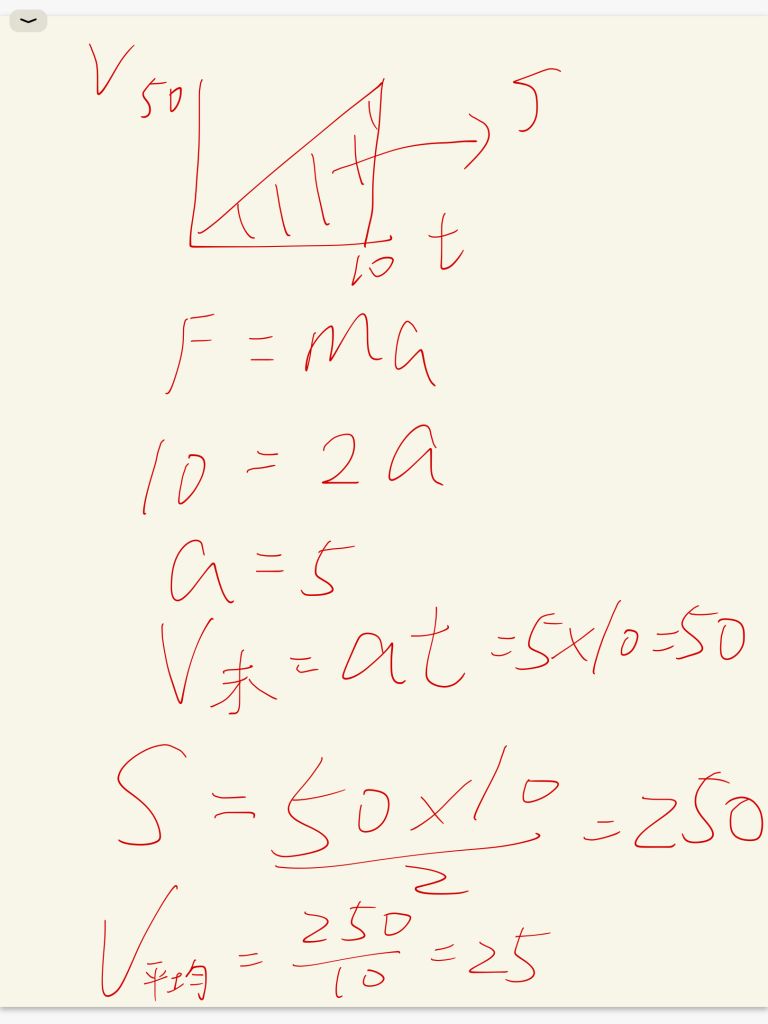 V
50
S
10 t
F = ma
10 = 2a
a = 5
V末 = at = 5×10 = 50
S = 50×10/2 = 250
V平均 = 250/10 = 25